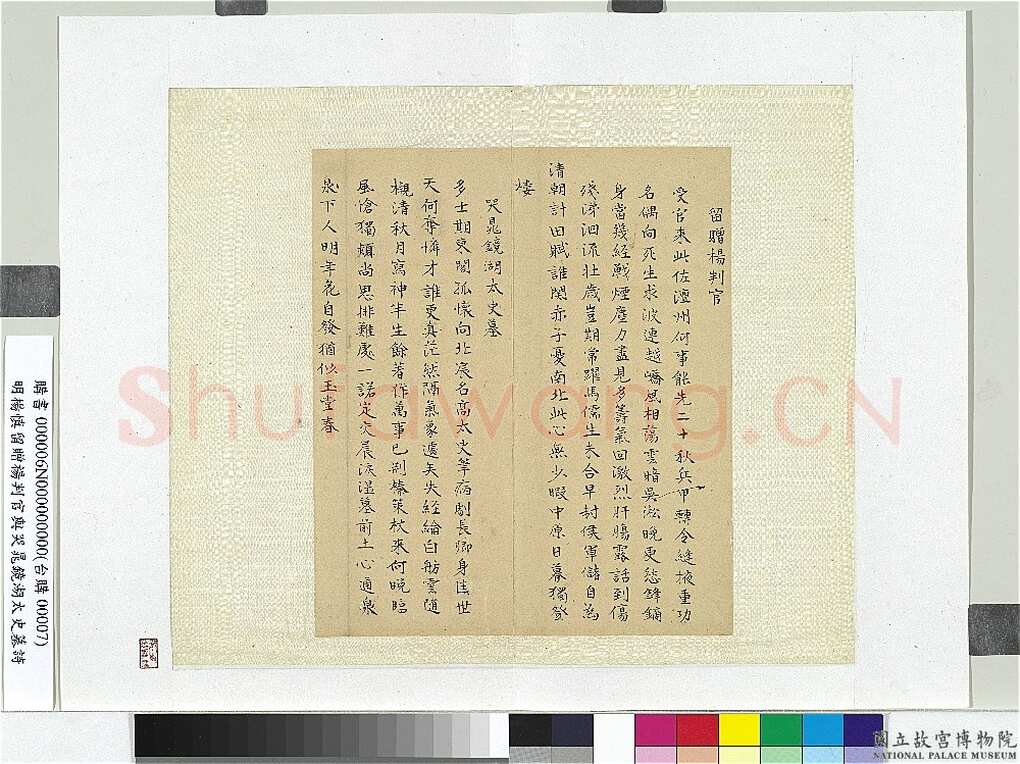 留贈楊判官
受官來此佐澶州何事能先二十秋兵甲轉令縫掖重功
名偶向死生求波連越嶠風相蕩雲暗吳淞晚更愁鋒鏑
身當幾經戰煙塵力盡見多籌氣回激烈肝膓露話到傷
殘涕泗流壯歲豈期常躍馬儒生未合早封侯軍儲自為
清朝計田賦誰関赤子憂南北此心無少暇中原日暮獨登
樓
哭晁鏡湖太史墓
多士期東閣孤懷向北宸名高太史筆病劇長卿身佳世
天何奪憐才誰更真茫然隔氣象遽矣失經綸白舫雲随
櫬清秋月寫神半生餘著作萬事已荆榛策杖來何晚臨
風愴獨頻尚思排難處一諾定交晨淚溼墓前土心通泉
下人明年花自發猶似玉堂春
Shufawang.CN
購書 000006N000000000(台購 00007)
明楊慎留贈楊判官與哭晁鏡湖太史墓詩
國立故宮博物院
NATIONAL PALACE MUSEUM